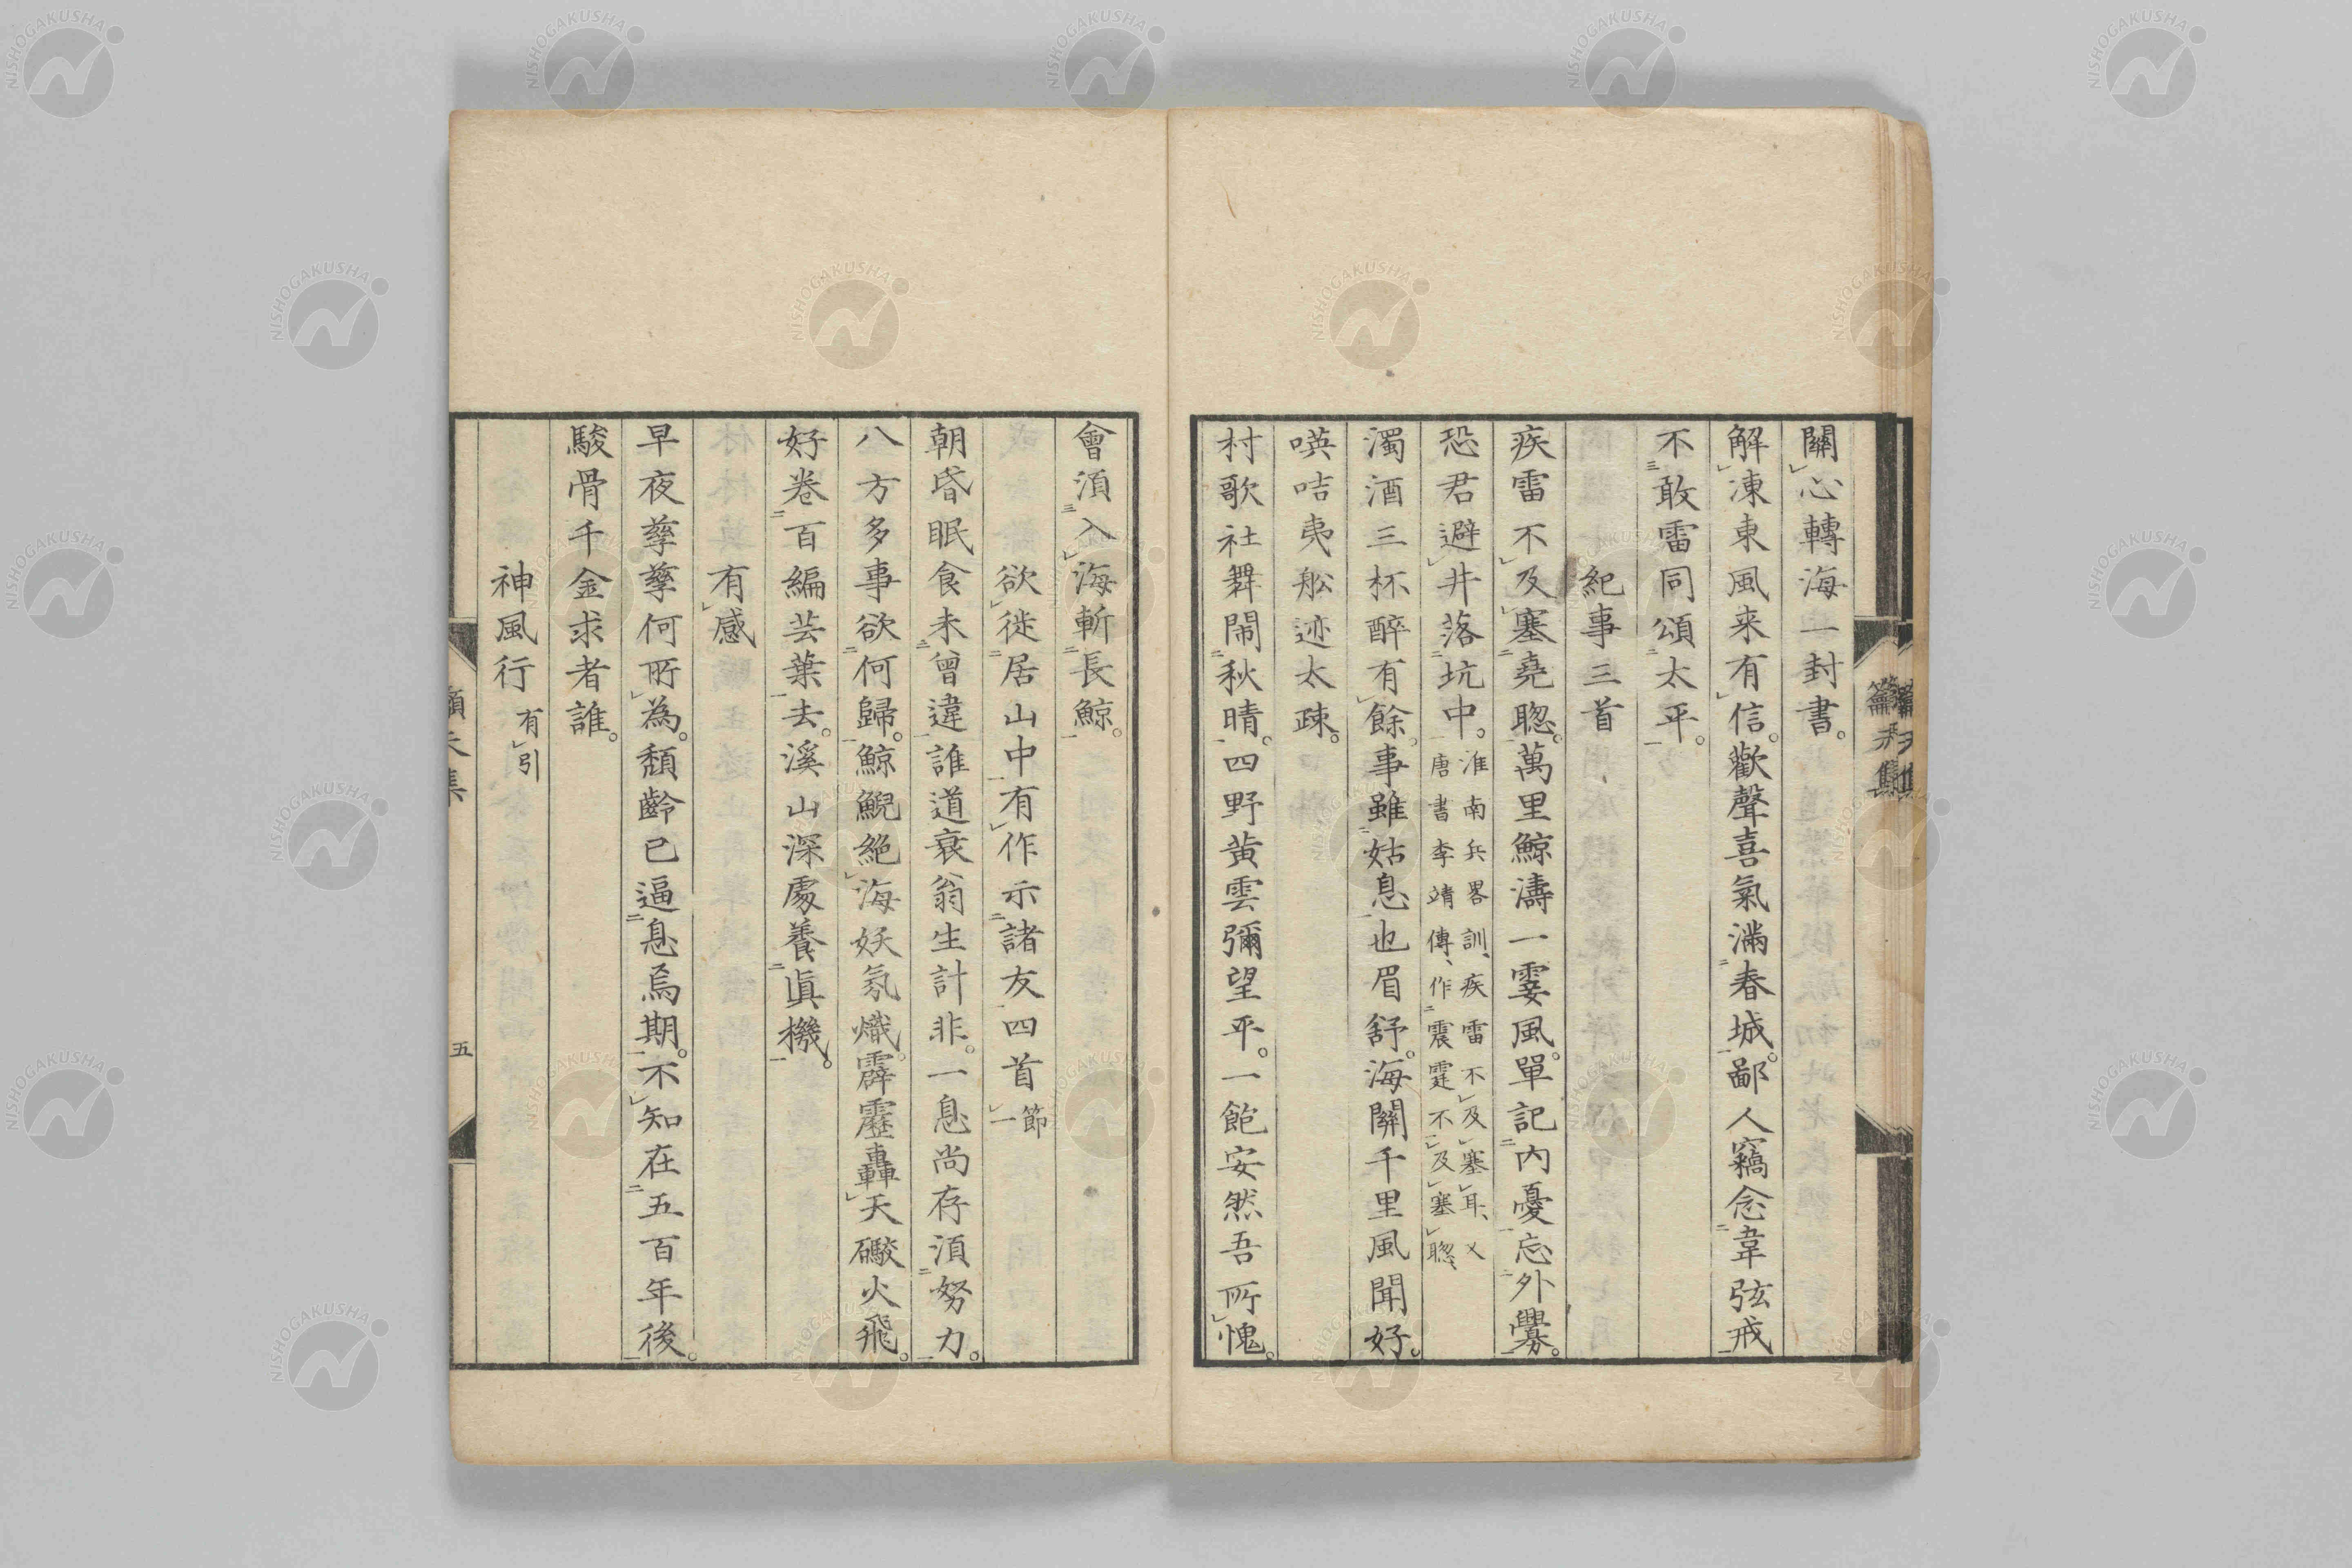 關心轉海一封書。
解凍東風来有信。歡聲喜氣滿春城。鄙人竊念韋弦戒
不敢雷同頌太平。
紀事三首
疾雷不及塞堯聰。萬里鯨濤一霎風。單記内憂忘外釁。
恐君避井落坑中。淮南兵畧訓、疾雷不及塞耳、又
唐書李靖傳、作震霆不及塞聰、
濁酒三杯醉有餘。事雖姑息也眉舒。海關千里風聞好。
暎咭夷舩迹太疎。
村歌社舞鬧秋晴。四野黄雲彌望平。一飽安然吾所愧。
會湏入海斬長鯨。
欲徙居山中有作示諸友四首 節一
朝昏眠食未曾違誰道衰翁生計非。一息尚存湏努力。
八方多事欲何歸。鯨鯢絶海妖氛熾。霹靂轟天礮火飛。
好卷百編芸葉去。溪山深處養眞機。
有感
早夜孳孳何所為。頽齡已逼息焉期。不知在五百年後。
駿骨千金求者誰。
神風行 有引
五
NISHOGAKUSHA